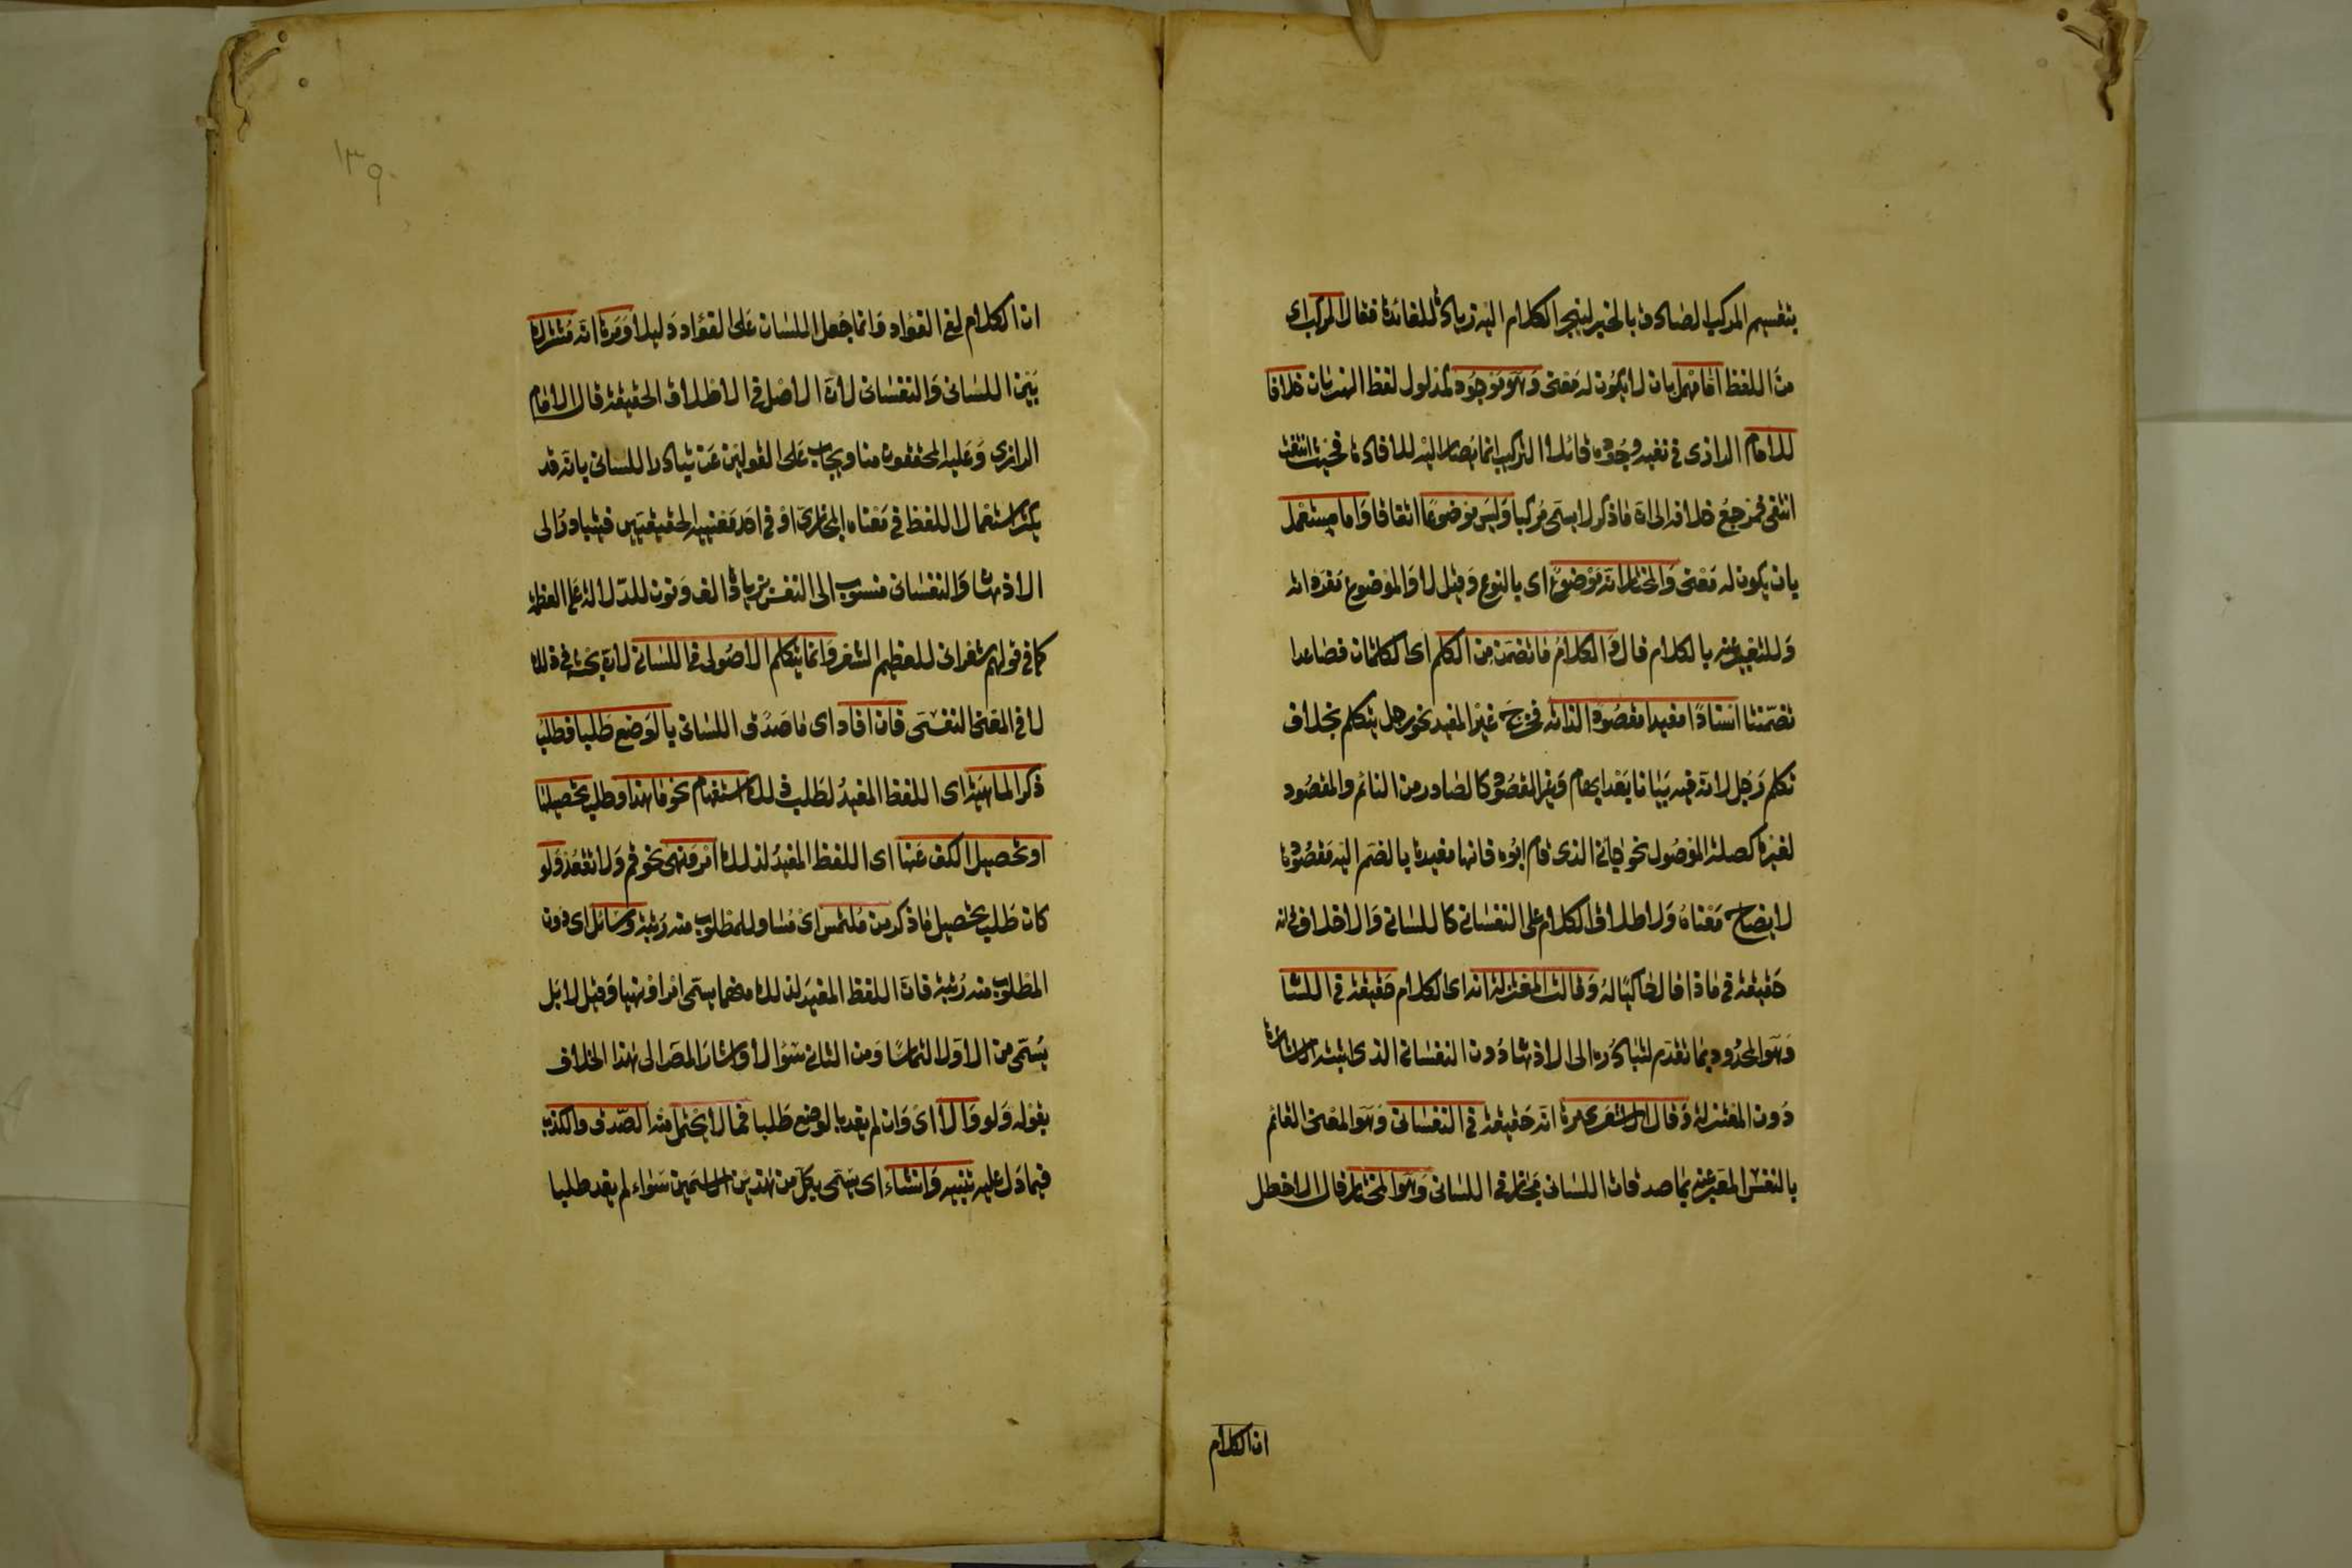 بتقسيم المركب الصادق بالخبر لينجر الكلام اليه زيادة للفائدة فقال المركب اى
من اللفظ اما مهمل بان لا يكون له معنى وهو موجود كمدلول لفظ الهذيان خلافا
للامام الرازى فى نفيه وجوده قائلا التركيب انما يصار اليه للافادة فحيث انتفت
انتفى فمرجع خلافه الى ان ما ذكر لا يسمى مركبا وليس موضوعا اتفاقا واما مستعمل
بان يكون له معنى والمختار انه موضوع اى بالنوع وقيل لا والموضوع مفرداته
وللتعبير عنه بالكلام قال والكلام ما تضمن من الكلم اى كلمتان فصاعدا
تضمنتا اسنادا مفيدا مقصودا لذاته فخرج غير المفيد نحو رجل يتكلم بخلاف
تكلم رجل لانه فيه بيانا بعد ابهام وغير المقصود كالصادر من النائم والمقصود
لغيره كصلة الموصول نحو جاءنى الذى قام ابوه فانها مفيدة بالضم اليه مقصودة
لايضاح معناه ولاطلاق الكلام على النفسانى كاللسانى والاختلاف فى انه
حقيقة فى ماذا قال حاكيا له وقالت المعتزلة انه اى الكلام حقيقة فى اللسانى
وهو المحدود بما تقدم لتبادره الى الاذهان دون النفسانى الذى اثبته الاشاعرة
دون المعتزلة وقال الاشعرى مرة انه حقيقة فى النفسانى وهو المعنى القائم
بالنفس المعبر عنه بما صدقات اللسانى مجاز فى اللسانى وهو المختار قال الاخطل
ان الكلام
١٣٩
ان الكلام لفى الفؤاد وانما جعل اللسان على الفؤاد دليلا ومرة انه مشترك
بين اللسانى والنفسانى لان الاصل فى الاطلاق الحقيقة قال الامام
الرازى وعليه المحققون منا ويجاب على القولين عن تبادر اللسانى بانه قد
يكثر استعمال اللفظ فى معناه المجازى او فى احد معنييه الحقيقيين فيتبادر الى
الاذهان والنفسانى منسوب الى النفس بزيادة الف ونون للدلالة على العظمة
كما فى قولهم شعرانى للعظيم الشعر وانما يتكلم الاصولى فى اللسانى لان بحثه فى ذلك
لا فى المعنى النفسى فان افاد اى ما صدق اللسانى بالوضع طلبا فطلب
ذكر الماهية اى اللفظ المفيد لطلب ذلك استفهام نحو ما هذا وطلب تحصيلها
او تحصيل الكف عنها اى اللفظ المفيد لذلك امر ونهى نحو قم ولا تقعد ولو
كان طلب تحصيل ما ذكر من ملتمس اى مساو للمطلوب منه رتبة وسائل اى دون
المطلوب منه رتبة فان اللفظ المفيد لذلك منهما يسمى امرا ونهيا وقيل لا بل
يسمى من الاول التماسا ومن الثانى سؤالا واشار المص الى هذا الخلاف
بقوله ولو والا اى وان لم يفد بالوضع طلبا فما لا يحتمل منه الصدق والكذب
فيما دل عليه تنبيه وانشاء اى يسمى بكل من هذين الاسمين سواء لم يفد طلبا